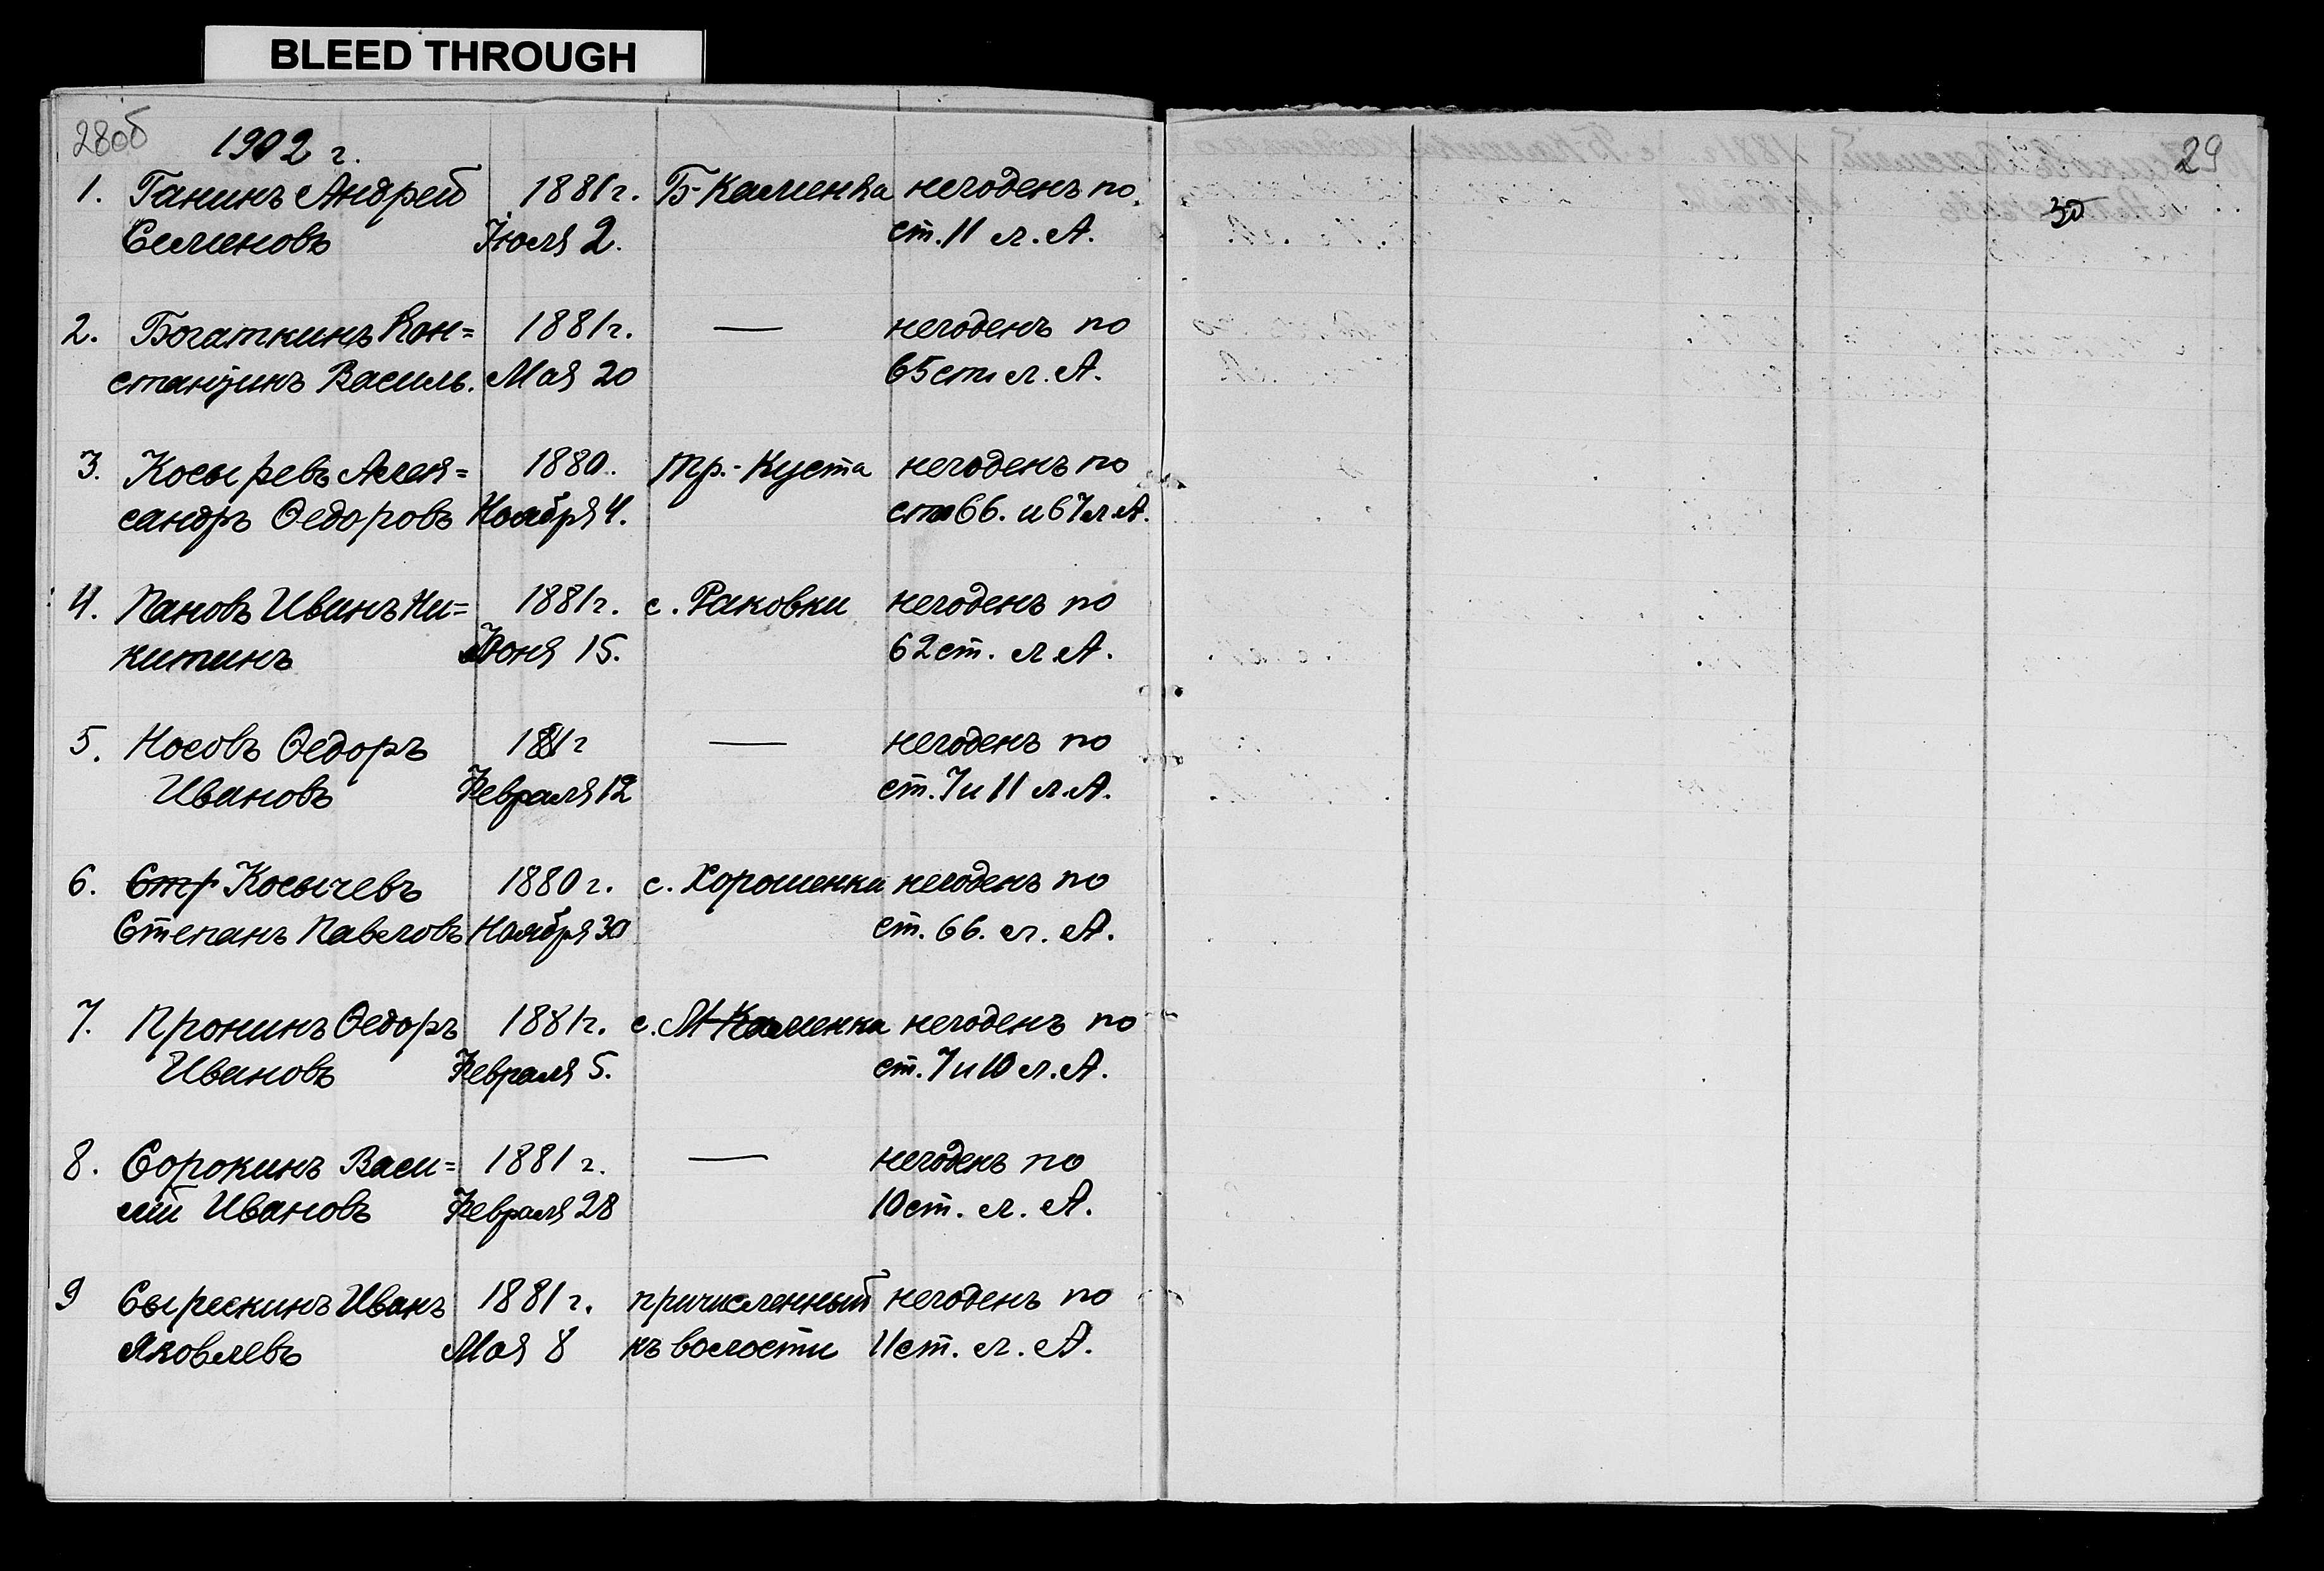 BLEED THROUGH
28об
1902 г.
1. Ганинъ Андрей 1881г. Б-Каменка негоденъ по
Семеновъ Іюля 2. ст. 11 л. А.
2. Богаткинъ Кон= 1881г. — негоденъ по
стантинъ Василь. Мая 20 65 ст. л. А.
3. Косыревъ Алек= 1880. Тр.-Куста негоденъ по
сандръ Ѳедоровъ Ноября 4. ст. 66. и 67 л. А.
4. Пановъ Иванъ Ни= 1881г. с. Раковки негоденъ по
китинъ Іюня 15. 62 ст. л. А.
5. Носовъ Ѳедоръ 1881г — негоденъ по
Ивановъ Февраля 12 ст. 7 и 11 л. А.
6. Стр Косычевъ 1880 г. с. Хорошенки негоденъ по
Степанъ Павловъ Ноября 30 ст. 66. л. А.
7. Пронинъ Ѳедоръ 1881г. с. М-Каменка негоденъ по
Ивановъ Февраля 5. ст. 7 и 10 л. А.
8. Сорокинъ Васи= 1881 г. — негоденъ по
лій Ивановъ Февраля 28 10 ст. л. А.
9 Сырескинъ Иванъ 1881 г. причисленный негоденъ по
Яковлевъ Мая 8 къ волости 11 ст. л. А.
29
30